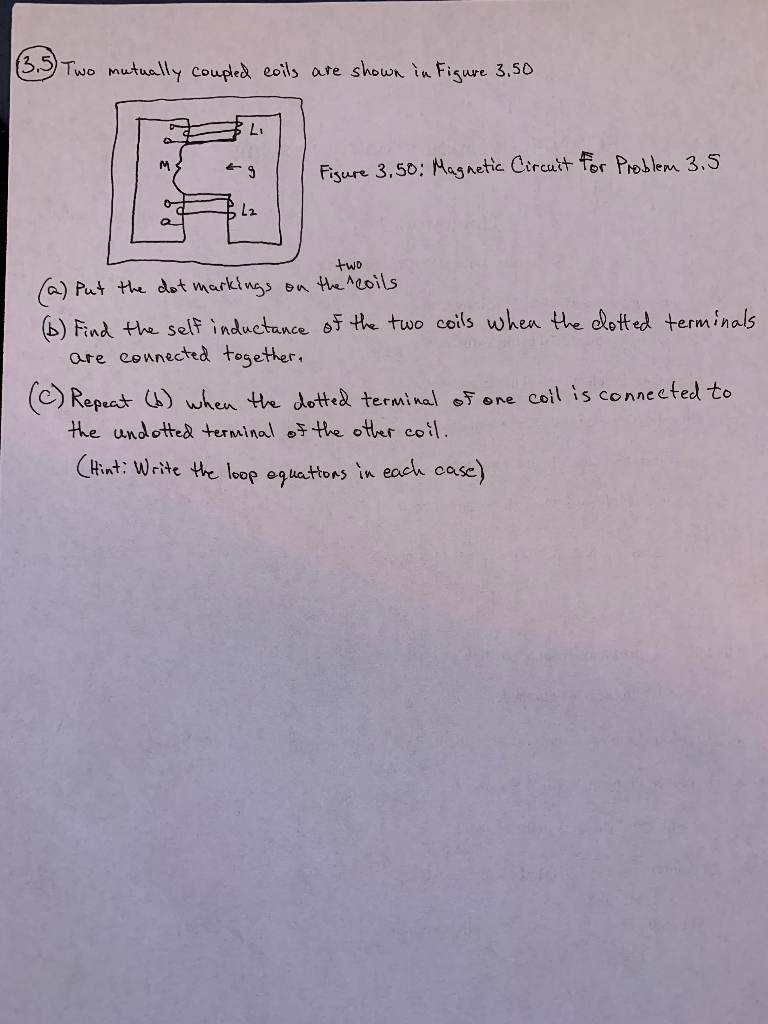 3.5 Two mutually coupled coils are shown in Figure 3.50
L1
M
← g
L2
Figure 3.50: Magnetic Circuit For Problem 3.5
(a) Put the dot markings on the ^two coils
(b) Find the self inductance of the two coils when the dotted terminals
are connected together.
(C) Repeat (b) when the dotted terminal of one coil is connected to
the undotted terminal of the other coil.
(Hint: Write the loop equations in each case)